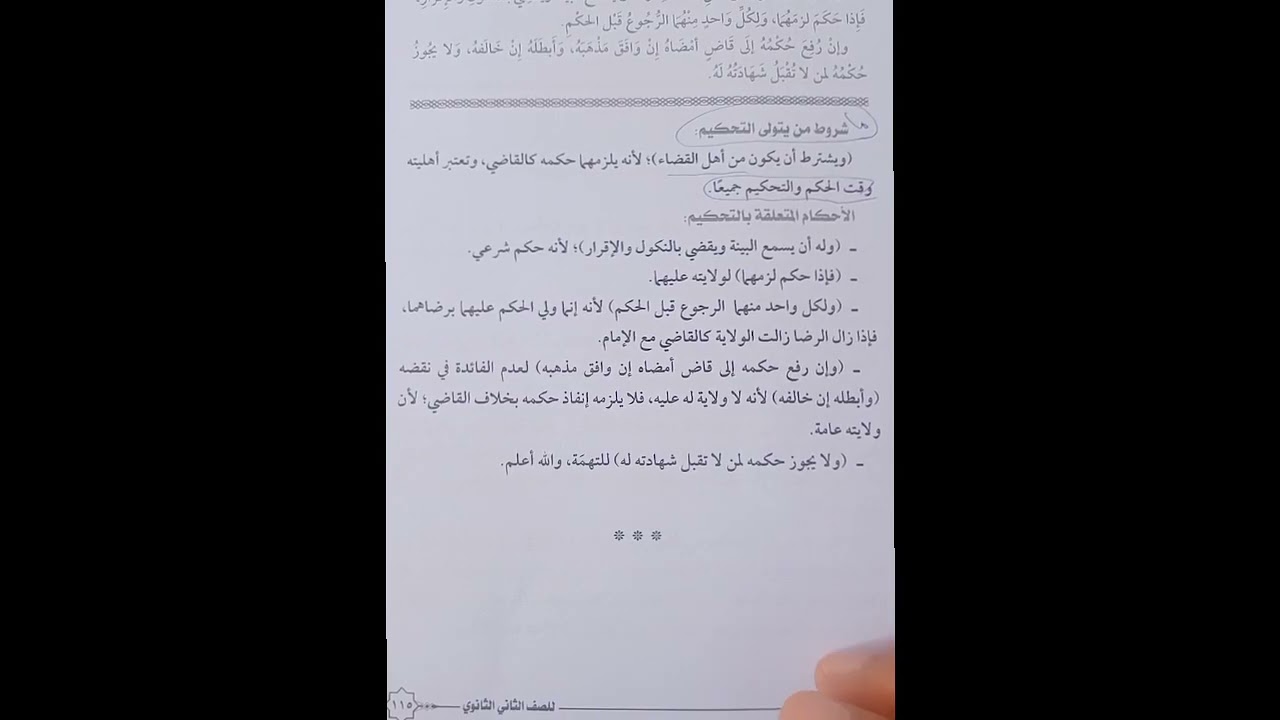 فَإِذَا حَكَمَ لَزِمَهُمَا، وَلِكُلِّ وَاحدٍ مِنْهُمَا الرُّجُوعُ قَبْل الحكْمِ.
وإنْ رُفِعَ حُكْمُهُ إلَى قَاضٍ أمْضَاهُ إنْ وَافَقَ مَذْهَبَهُ، وَأَبطَلَهُ إنْ خَالَفهُ، وَلا يجُوزُ
حُكْمُهُ لمن لا تُقْبَلُ شَهَادَتُهُ لَهُ.
شروط من يتولى التحكيم:
(ويشترط أن يكون من أهل القضاء)؛ لأنه يلزمهما حكمه كالقاضي، وتعتبر أهليته
وقت الحكم والتحكيم جميعًا.
الأحكام المتعلقة بالتحكيم:
ـ (وله أن يسمع البينة ويقضي بالنكول والإقرار)؛ لأنه حكم شرعي.
ـ (فإذا حكم لزمهما) لولايته عليهما.
ـ (ولكل واحد منهما الرجوع قبل الحكم) لأنه إنما ولي الحكم عليهما برضاهما،
فإذا زال الرضا زالت الولاية كالقاضي مع الإمام.
ـ (وإن رفع حكمه إلى قاض أمضاه إن وافق مذهبه) لعدم الفائدة في نقضه
(وأبطله إن خالفه) لأنه لا ولاية له عليه، فلا يلزمه إنفاذ حكمه بخلاف القاضي؛ لأن
ولايته عامة.
ـ (ولا يجوز حكمه لمن لا تقبل شهادته له) للتهمَة، والله أعلم.
* * *
للصف الثاني الثانوي
١١٥